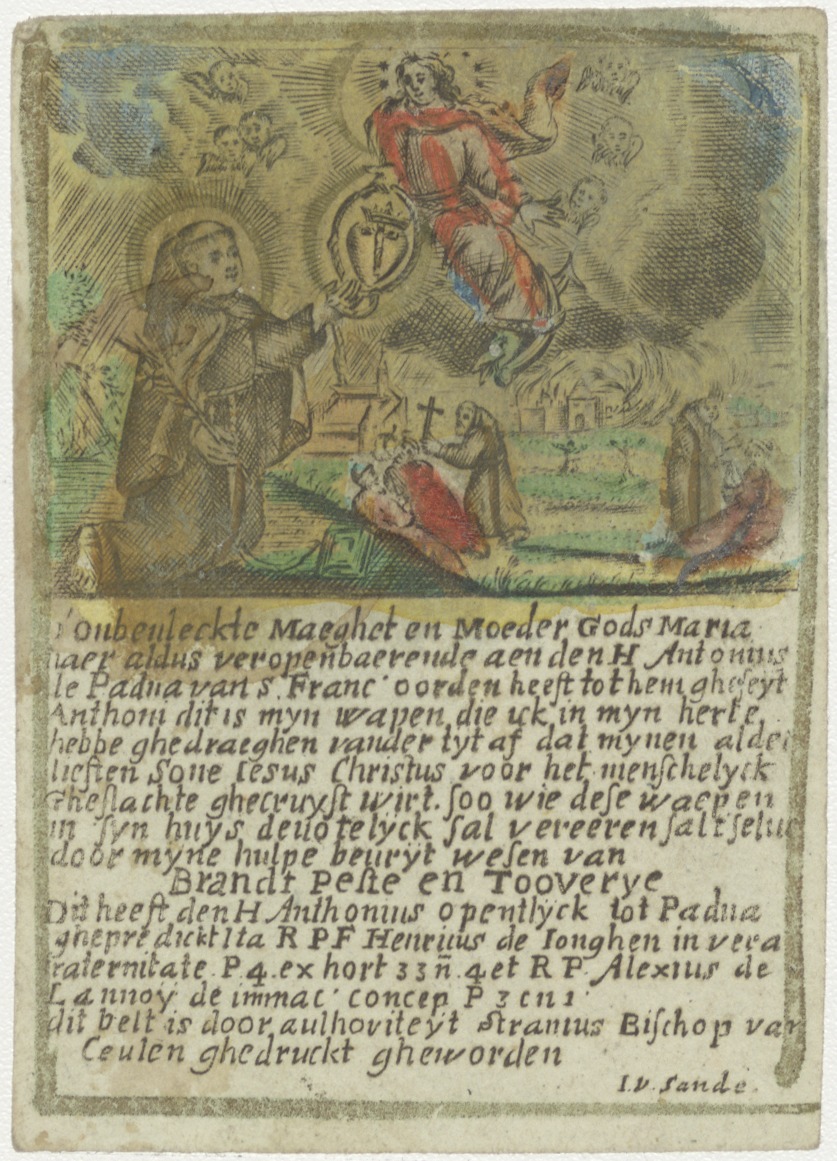 Onbeuleckte Maeghet en Moeder Gods Maria
haer aldus veropenbaerende aen den H Antonius
de Padua van S. Franc' oorden heeft tot hem gheseyt
Anthoni dit is myn wapen die ick in myn herte
hebbe ghedraeghen vander tyt af dat mynen alder
liefsten Sone Iesus Christus voor het menschelyck
Gheslachte ghecruyst wirt. soo wie dese waepen
in syn huys deuotelyck sal vereeren salt selue
door myne hulpe beuryt wesen van
Brandt Peste en Tooverye
Dit heeft den H Anthonius opentlyck tot Padua
ghepredickt Ita R P F Henricus de Ionghen in vera
fraternitate P 4 ex hort 33 n̄ 4 et R P Alexius de
Lannoy de immac' concep P 3 cn 1
dit belt is door authoriteyt Stranius Bischop van
Ceulen ghedruckt gheworden
I. v. Sande.